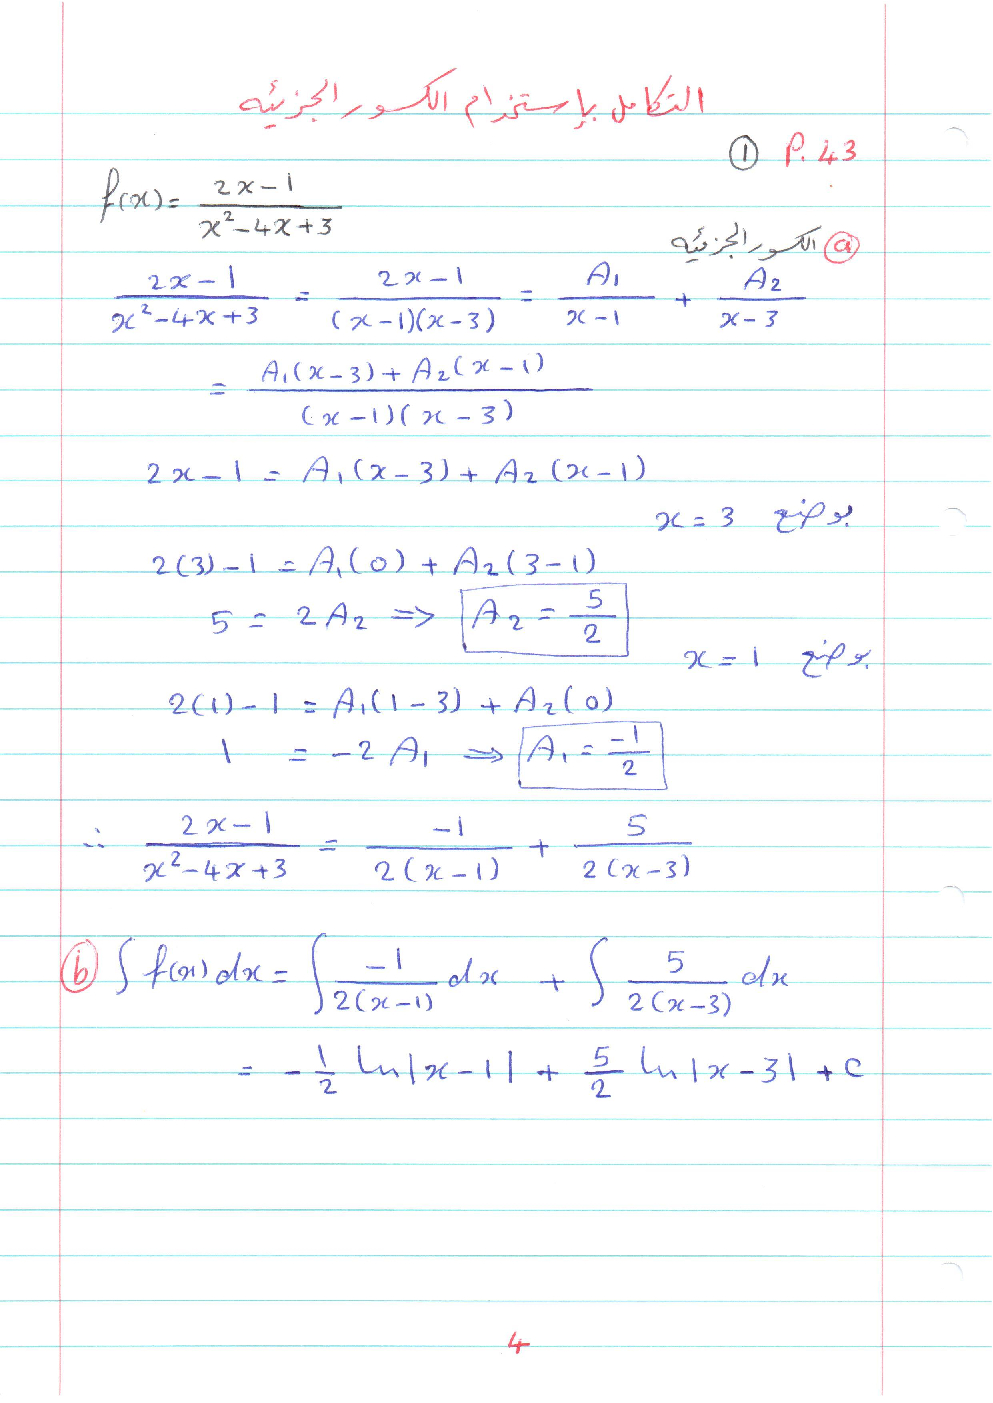 التكامل بإستخدام الكسور الجزئيه
① P. 43
f(x) = (2x-1)/(x²-4x+3)
ⓐ الكسور الجزئيه
(2x-1)/(x²-4x+3) = (2x-1)/((x-1)(x-3)) = A₁/(x-1) + A₂/(x-3)
= (A₁(x-3) + A₂(x-1))/((x-1)(x-3))
2x-1 = A₁(x-3) + A₂(x-1)
بوضع x = 3
2(3)-1 = A₁(0) + A₂(3-1)
5 = 2A₂ => A₂ = 5/2
بوضع x = 1
2(1)-1 = A₁(1-3) + A₂(0)
1 = -2A₁ => A₁ = -1/2
∴ (2x-1)/(x²-4x+3) = -1/(2(x-1)) + 5/(2(x-3))
ⓑ ∫ f(x) dx = ∫ -1/(2(x-1)) dx + ∫ 5/(2(x-3)) dx
= -1/2 ln|x-1| + 5/2 ln|x-3| + c
4